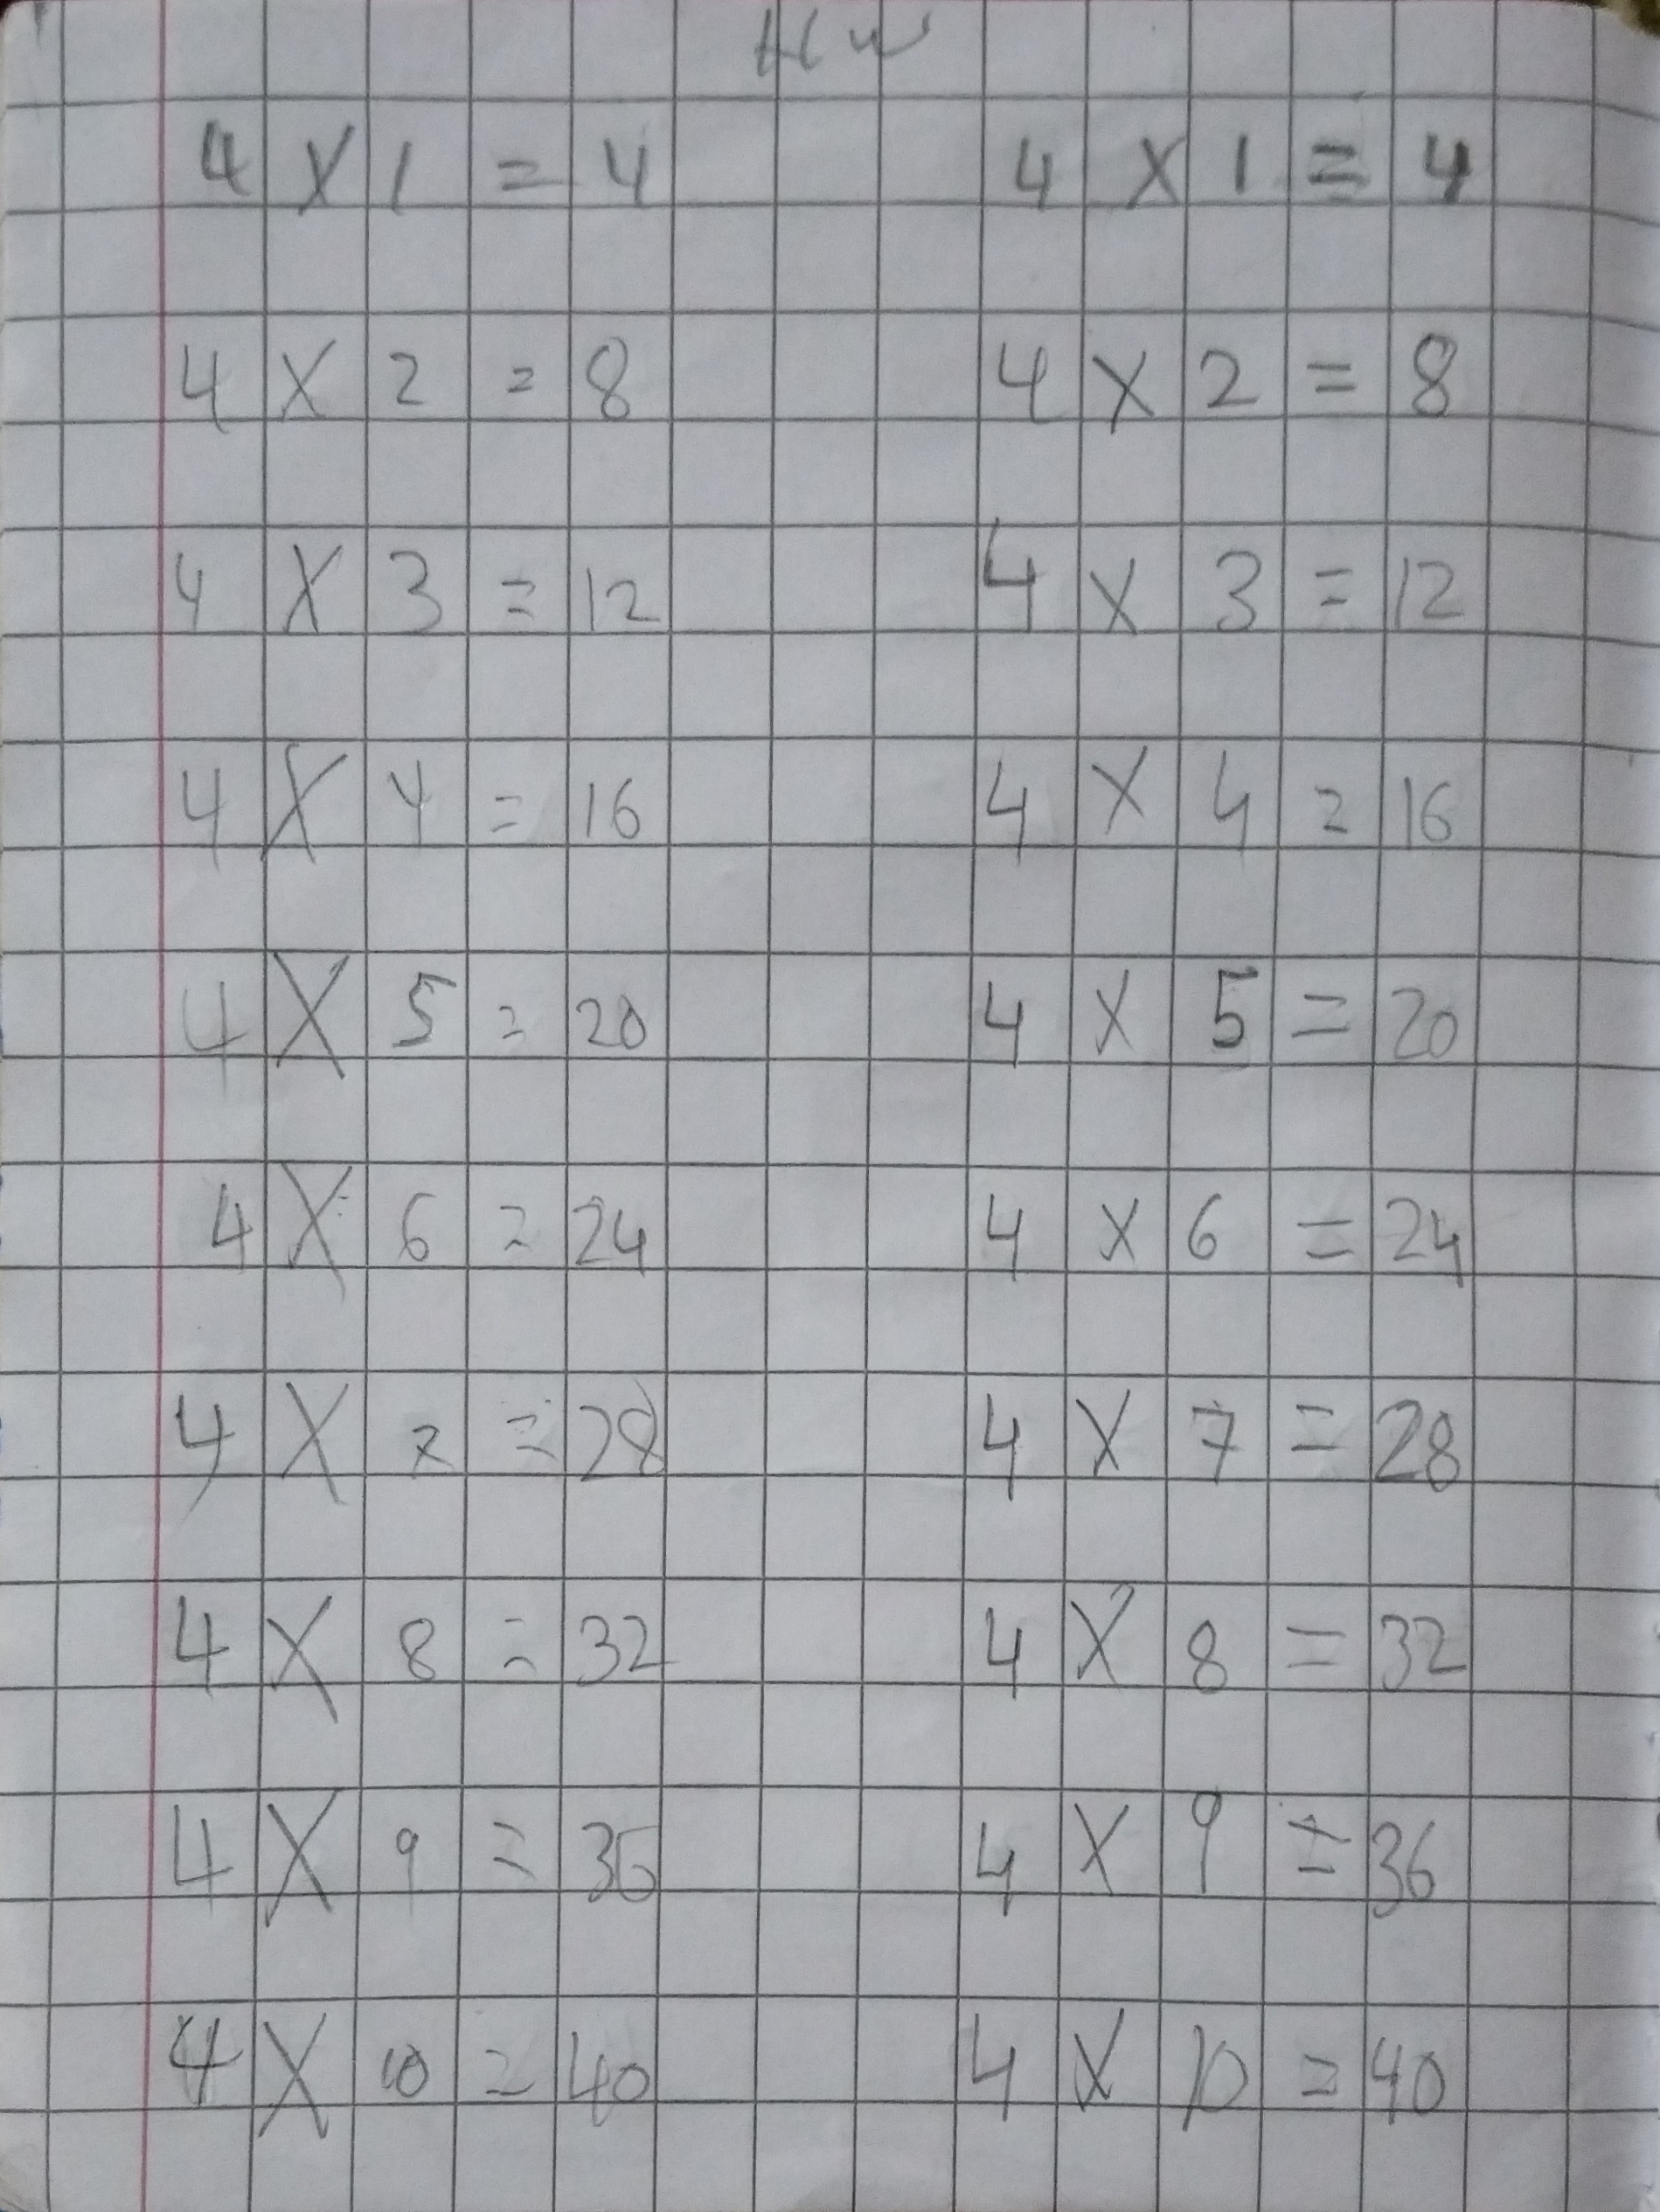 HW
4 X 1 = 4 4 X 1 = 4
4 X 2 = 8 4 X 2 = 8
4 X 3 = 12 4 X 3 = 12
4 X 4 = 16 4 X 4 = 16
4 X 5 = 20 4 X 5 = 20
4 X 6 = 24 4 X 6 = 24
4 X 7 = 28 4 X 7 = 28
4 X 8 = 32 4 X 8 = 32
4 X 9 = 36 4 X 9 = 36
4 X 10 = 40 4 X 10 = 40